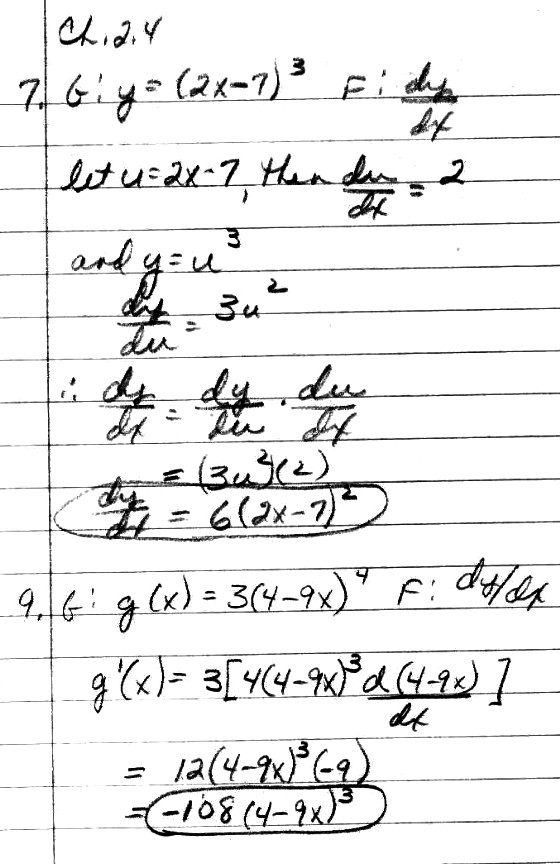 Ch. 2.4
7. G: y = (2x-7)³ F: dy/dx
let u = 2x-7, then du/dx = 2
and y = u³
dy/du = 3u²
∴ dy/dx = dy/du · du/dx
= (3u²)(2)
dy/dx = 6(2x-7)²
9. G: g(x) = 3(4-9x)⁴ F: dy/dx
g'(x) = 3[4(4-9x)³ d(4-9x)/dx]
= 12(4-9x)³(-9)
= -108(4-9x)³